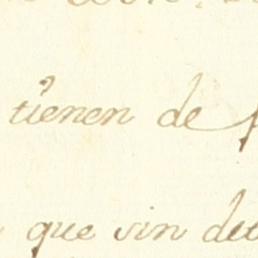 tienen de
que sin